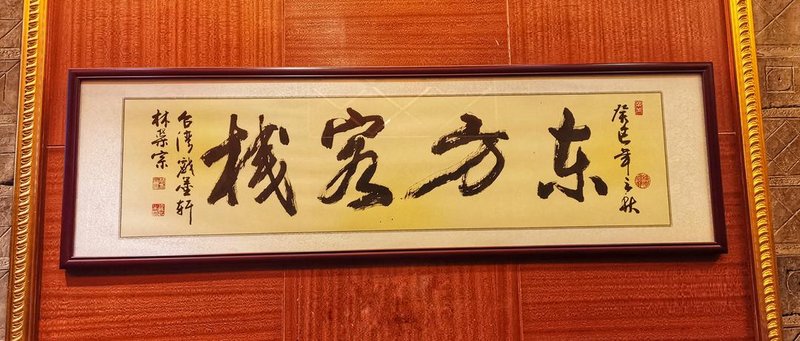 癸巳年之秋
东方客栈
台湾戲墨轩
林荣宗